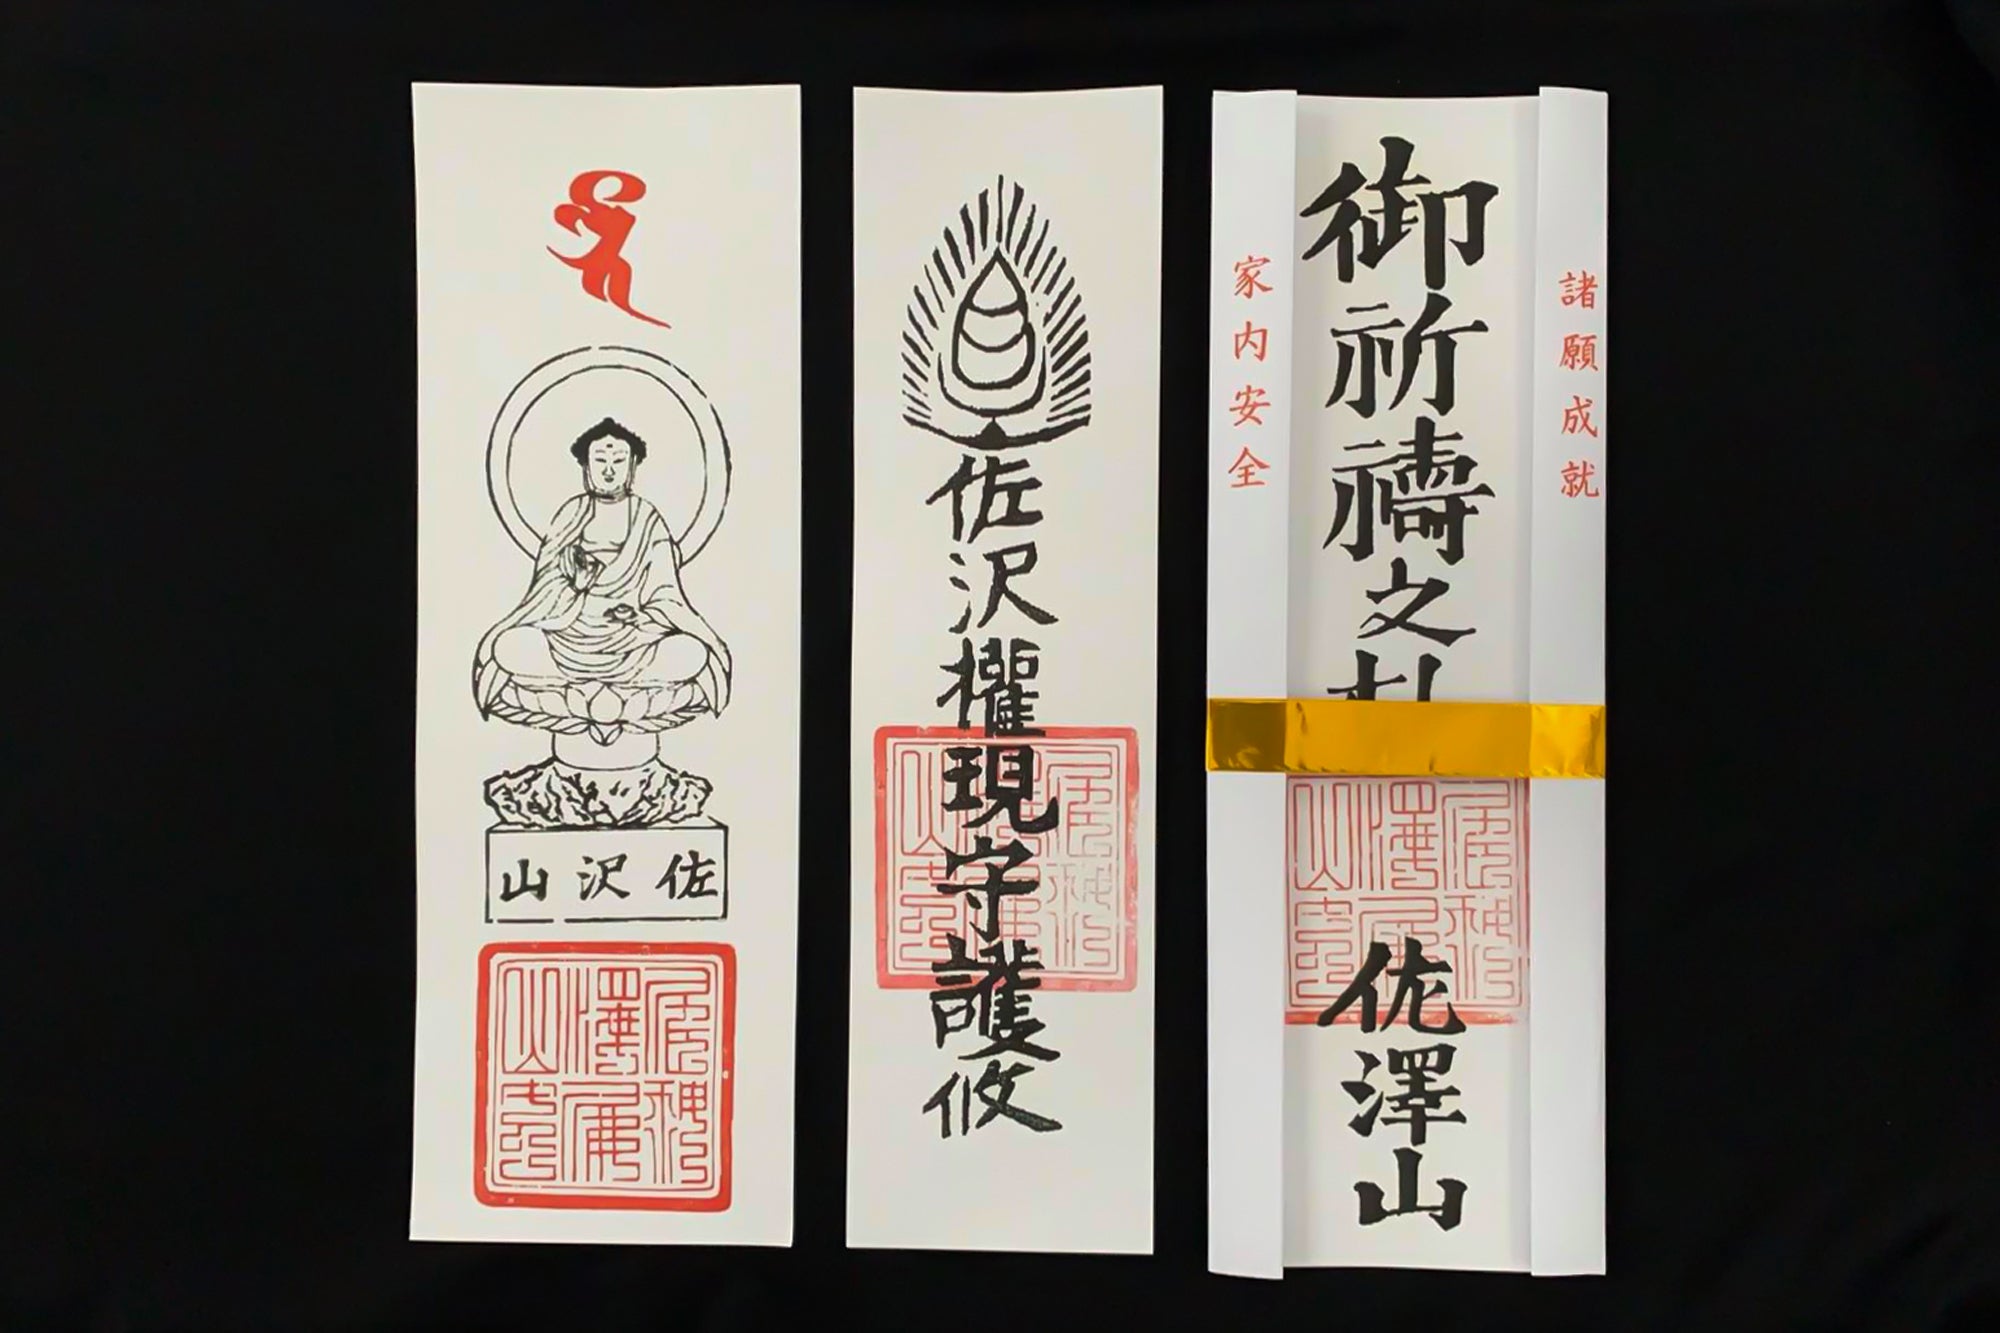 佐沢山
佐沢權現守護攸
諸願成就
御祈禱之札
佐澤山
家内安全